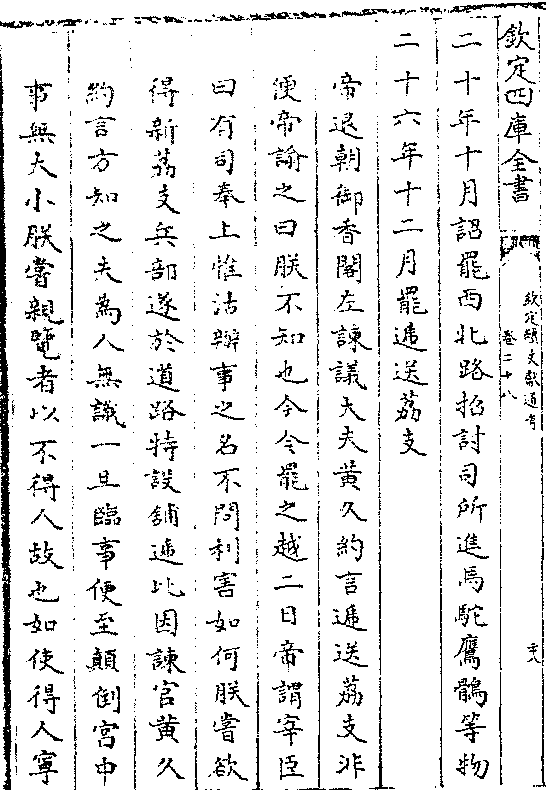 欽定四庫全書
欽定續文獻通考
卷二十八
二十年十月詔罷西北路招討司所進馬駝鷹鶻等物
二十六年十二月罷逓送荔支
帝退朝御香閣左諫議大夫黄久約言逓送荔支非
便帝諭之曰朕不知也今令罷之越二日帝謂宰臣
曰有司奉上惟沽辦事之名不問利害如何朕嘗欲
得新荔支兵部遂於道路特設舖逓比因諫官黄久
約言方知之夫為人無識一旦臨事便至顛倒宫中
事無大小朕嘗親覽者以不得人故也如使得人寧